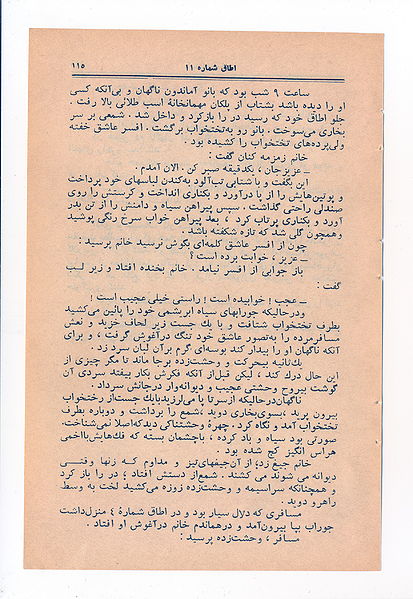 اطاق شماره ۱۱
۱۱۵
ساعت ۹ شب بود که بانو آماندون ناگهان و بی‌آنکه کسی
او را دیده باشد بشتاب از پلکان مهمانخانهٔ اسب طلائی بالا رفت .
جلو اطاق خود که رسید در را بازکرد و داخل شد . شمعی بر سر
بخاری می‌سوخت . بانو رو به‌تختخواب برگشت . افسر عاشق خفته
ولی‌پرده‌های تختخواب را کشیده بود .
خانم زمزمه کنان گفت :
ـ عزیزجان ، یکدقیقه صبر کن . الان آمدم .
این بگفت و باشتابی تب‌آلود به‌کندن لباسهای خود پرداخت
و پوتین‌هایش را از پا درآورد و بکناری انداخت و کرستش را روی
صندلی راحتی گذاشت . سپس پیراهن سیاه و دامنش را از تن بدر
آورد و بکناری پرتاب کرد ، بعد پیراهن خواب سرخ رنگی پوشید
وهمچون گلی شد که تازه شکفته باشد .
چون از افسر عاشق کلمه‌ای بگوش نرسید خانم پرسید :
ـ عزیز ، خوابت برده است ؟
باز جوابی از افسر نیامد . خانم بخنده افتاد و زیر لب
گفت :
ـ عجب ! خوابیده است ! راستی خیلی عجیب است !
ودرحالیکه جورابهای سیاه ابریشمی خود را پائین می‌کشید
بطرف تختخواب شتافت و با یك جست زیر لحاف خزید و نعش
مسافرمرده را به‌تصور عاشق خود تنگ درآغوش گرفت ، و برای
آنکه ناگهان او را بیدار کند بوسه‌ای گرم برآن لبان سرد زد .
یك‌ثانیه بیحرکت و وحشت‌زده برجا ماند تا مگر چیزی از
این حال درك کند ، لیکن قبل‌از آنکه فکرش بکار بیفتد سردی آن
گوشت بیروح وحشتی عجیب و دیوانه‌وار درجانش سرداد .
ناگهان‌درحالیکه ازسرتا پا می‌لرزیدبایك جست‌از رختخواب
بیرون پرید ،بسوی‌بخاری دوید ،شمع را برداشت و دوباره بطرف
تختخواب آمد و نگاه کرد . چهرهٔ وحشتناکی دیدکه‌اصلا نمی‌شناخت.
صورتی بود سیاه و باد کرده ، باچشمان بسته که فك‌هایش‌بااخمی
هراس انگیز کج شده بود .
خانم جیغ زد؛ از آن‌جیغهای‌تیز و مداوم که زنها وقتی
دیوانه می شوند می کشند . شمع‌از دستش افتاد ، در را باز کرد
و همچنانکه سراسیمه و وحشت‌زده زوزه می‌کشید لخت به وسط
راهرو دوید .
مسافری که دلال سیار بود و در اطاق شمارهٔ ٤ منزل‌داشت
جوراب بپا بیرون‌آمد و درهماندم خانم درآغوش او افتاد .
مسافر ، وحشت‌زده پرسید :